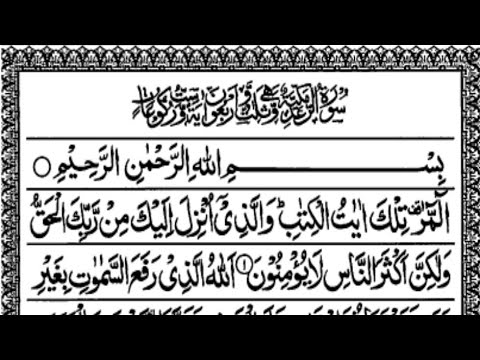 سُوْرَةُ الرَّعْدِ مَدَنِيَّةٌ وَّهِيَ ثَلٰثٌ وَّاَرْبَعُوْنَ اٰيَةً وَّسِتُّ رُكُوْعَاتٍ
بِسْمِ اللّٰهِ الرَّحْمٰنِ الرَّحِيْمِ ○
الٓمّٓرٰ ۫ تِلْكَ اٰيٰتُ الْكِتٰبِ ؕ وَالَّذِيْۤ اُنْزِلَ اِلَيْكَ مِنْ رَّبِّكَ الْحَقُّ
وَلٰكِنَّ اَكْثَرَ النَّاسِ لَا يُؤْمِنُوْنَ ① اَللّٰهُ الَّذِيْ رَفَعَ السَّمٰوٰتِ بِغَيْرِ